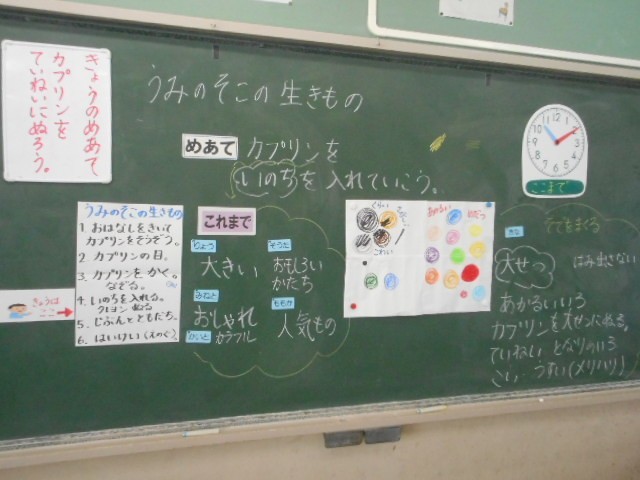 きょうのめあて
カプリンを
ていねいにぬろう。
うみのそこの生きもの
めあて
カプリンを
いのちを入れていこう。
12
1
2
3
4
5
6
7
8
9
10
11
ここまで
うみのそこの生きもの
1. おはなしをきいて
カプリンをそうぞう。
2. カプリンの目。
3. カプリンをかく。
なでる。
4. いのちを入れる。
クレヨン ぬる
5. じぶんとともだち。
6. はいけい(えのぐ)
きょうは
ここ
これまで
りょう
大きい
そうた
おもしろい
かたち
さねと
おしゃれ
かいと
カラフル
ももか
人気もの
くらい
こわい
あかるい
めだつ
そでをまくる
大せつ
はみ出さない
あかるいいろ
カプリンを大せつにぬる。
ていねい となりのいろ
こい・うすい(メリハリ)